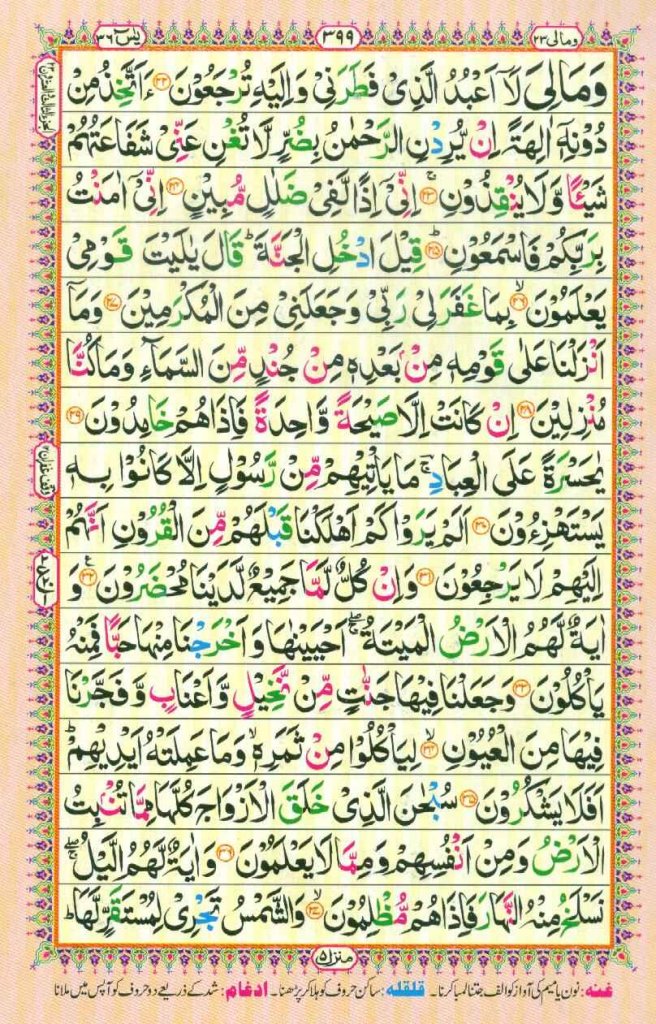 ومالی ٢٣
٣٩٩
یٰسٓ ٣٦
وَمَا لِیَ لَاۤ اَعْبُدُ الَّذِیْ فَطَرَنِیْ وَاِلَیْهِ تُرْجَعُوْنَ ﴿٢٢﴾ ءَاَتَّخِذُ مِنْ
دُوْنِهٖۤ اٰلِهَةً اِنْ یُّرِدْنِ الرَّحْمٰنُ بِضُرٍّ لَّا تُغْنِ عَنِّیْ شَفَاعَتُهُمْ
شَیْـًٔا وَّلَا یُنْقِذُوْنِ ﴿٢٣﴾ اِنِّیْۤ اِذًا لَّفِیْ ضَلٰلٍ مُّبِیْنٍ ﴿٢٤﴾ اِنِّیْۤ اٰمَنْتُ
بِرَبِّكُمْ فَاسْمَعُوْنِ ﴿٢٥﴾ قِیْلَ ادْخُلِ الْجَنَّةَ ؕ قَالَ یٰلَیْتَ قَوْمِیْ
یَعْلَمُوْنَ ﴿٢٦﴾ بِمَا غَفَرَ لِیْ رَبِّیْ وَجَعَلَنِیْ مِنَ الْمُكْرَمِیْنَ ﴿٢٧﴾ وَمَاۤ
اَنْزَلْنَا عَلٰی قَوْمِهٖ مِنْۢ بَعْدِهٖ مِنْ جُنْدٍ مِّنَ السَّمَآءِ وَمَا كُنَّا
مُنْزِلِیْنَ ﴿٢٨﴾ اِنْ كَانَتْ اِلَّا صَیْحَةً وَّاحِدَةً فَاِذَا هُمْ خٰمِدُوْنَ ﴿٢٩﴾
یٰحَسْرَةً عَلَی الْعِبَادِ ۚ مَا یَاْتِیْهِمْ مِّنْ رَّسُوْلٍ اِلَّا كَانُوْا بِهٖ
یَسْتَهْزِءُوْنَ ﴿٣٠﴾ اَلَمْ یَرَوْا كَمْ اَهْلَكْنَا قَبْلَهُمْ مِّنَ الْقُرُوْنِ اَنَّهُمْ
اِلَیْهِمْ لَا یَرْجِعُوْنَ ﴿٣١﴾ وَاِنْ كُلٌّ لَّمَّا جَمِیْعٌ لَّدَیْنَا مُحْضَرُوْنَ ﴿٣٢﴾ وَ
اٰیَةٌ لَّهُمُ الْاَرْضُ الْمَیْتَةُ ۚۖ اَحْیَیْنٰهَا وَاَخْرَجْنَا مِنْهَا حَبًّا فَمِنْهُ
یَاْكُلُوْنَ ﴿٣٣﴾ وَجَعَلْنَا فِیْهَا جَنّٰتٍ مِّنْ نَّخِیْلٍ وَّاَعْنَابٍ وَّفَجَّرْنَا
فِیْهَا مِنَ الْعُیُوْنِ ﴿٣٤﴾ لِیَاْكُلُوْا مِنْ ثَمَرِهٖ ۙ وَمَا عَمِلَتْهُ اَیْدِیْهِمْ ؕ
اَفَلَا یَشْكُرُوْنَ ﴿٣٥﴾ سُبْحٰنَ الَّذِیْ خَلَقَ الْاَزْوَاجَ كُلَّهَا مِمَّا تُنْۢبِتُ
الْاَرْضُ وَمِنْ اَنْفُسِهِمْ وَمِمَّا لَا یَعْلَمُوْنَ ﴿٣٦﴾ وَاٰیَةٌ لَّهُمُ الَّیْلُ ۚۖ
نَسْلَخُ مِنْهُ النَّهَارَ فَاِذَا هُمْ مُّظْلِمُوْنَ ﴿٣٧﴾ وَالشَّمْسُ تَجْرِیْ لِمُسْتَقَرٍّ لَّهَا ؕ
منزل ٥
غنه: نون یا میم کی آواز کو الف جتنا لمبا کرنا۔ قلقله: ساکن حروف کو ہلا کر پڑھنا۔ ادغام: شد کے ذریعے دو حروف کو آپس میں ملانا